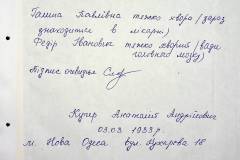 Галина Павлівна тяжко хвора /зараз
знаходиться в лікарні.)
Федір Іванович тяжко хворий /вади
головного мозку)
Підпис очевидця
Кучер Анатолій Андрійович
03.03 1933 р.
м. Нова Одеса вул. 18